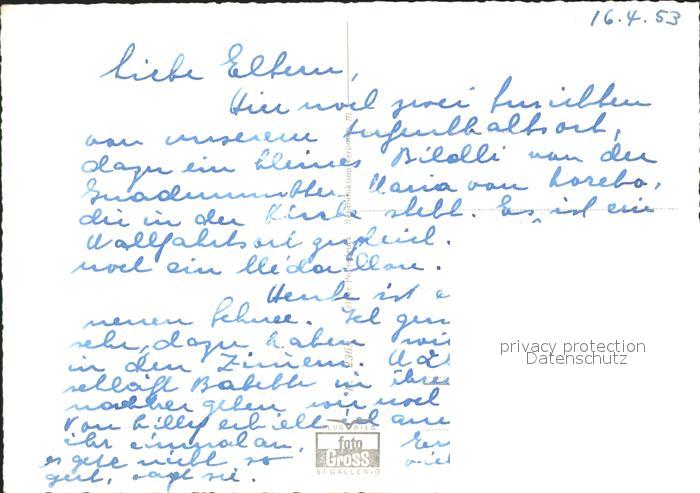 16.4.53
Liebe Eltern,
Hier noch zwei Ansichten
von unserem Aufenthaltsort,
dazu ein kleines Bildli von der
Gnadenmutter Maria von Loreto,
die in der Kirche steht. Es ist ein
Wallfahrtsort zugleich.
noch ein Médaillon.
Heute ist
neuen Schnee. Ich
sehr, dazu haben wir
in den Zimmern.
schläft Babette in ihrem
nachher gehen wir noch
Von Lilly erhielt ich
ihr einmal an,
es gehe nicht so
gut, sagt sie.
privacy protection
Datenschutz
FLUGBILD
foto
Gross
ST. GALLEN-O